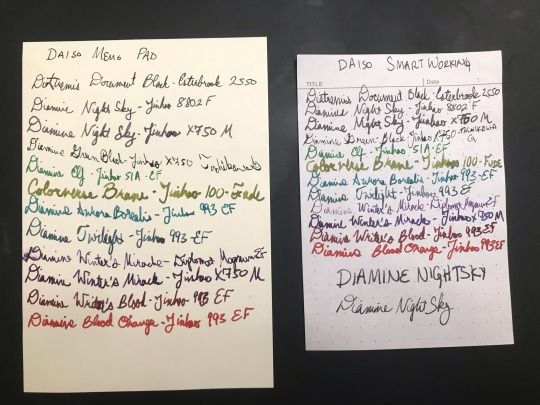 DAISO MEMO PAD
Diatremis Document Black - Esterbrook 2550
Diamine Night Sky - Jinhao 8802 F
Diamine Night Sky - Jinhao X750 M
Diamine Green Black - Jinhao X750
Diamine Elf - Jinhao 51A - EF
Colorverse Brane - Jinhao 100 - Fude
Diamine Aurora Borealis - Jinhao 993 - EF
Diamine Twilight - Jinhao 993 - EF
Diamine Winter's Miracle - Diplomat Magnum EF
Diamine Winter's Miracle - Jinhao X750 M
Diamine Writer's Blood - Jinhao 993 EF
Diamine Blood Orange - Jinhao 993 EF
DAISO SMART WORKING
TITLE Date
Diatremis Document Black - Esterbrook 2550
Diamine Night Sky - Jinhao 8802 F
Diamine Night Sky - Jinhao X750 M
Diamine Green-Black Jinhao X750 -
Diamine Elf - Jinhao 51A - EF
Colorverse Brane - Jinhao 100 - Fude
Diamine Aurora Borealis - Jinhao 993 EF
Diamine Twilight - Jinhao 993 EF
Diamine Winter's Miracle - Diplomat Magnum EF
Diamine Winter's Miracle - Jinhao X750 M
Diamine Writer's Blood - Jinhao 993 EF
Diamine Blood Orange - Jinhao 993 EF
DIAMINE NIGHTSKY
Diamine Night Sky